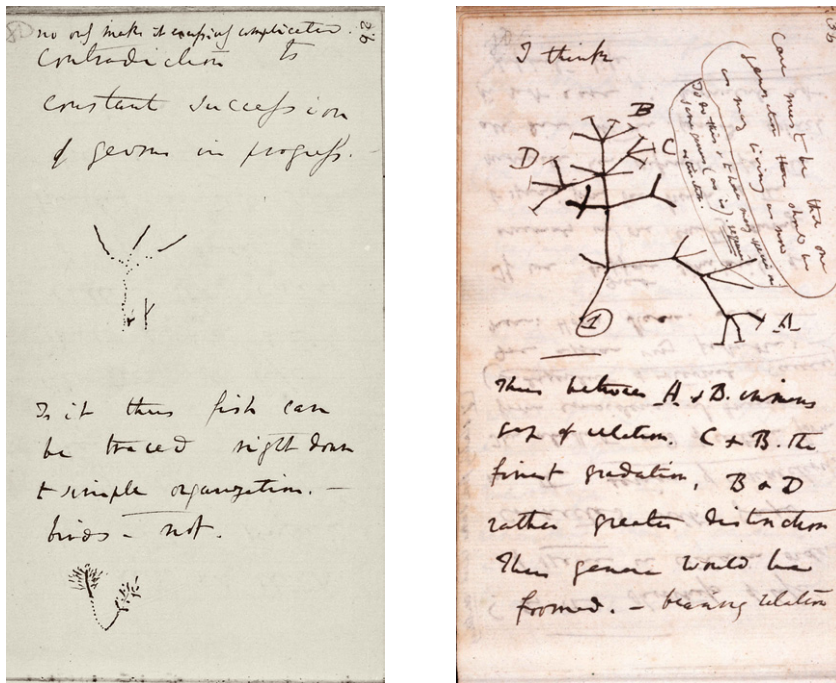 26
no only makes it excessively complicated
Contradiction to
constant succession
of germs in progress.
Is it thus fish can
be traced right down
to simple organization. —
birds — not.
36
I think
Case must be that one
generation then should be
as many living as now
To do this & to have many species in
same genus (as is). requires
extinction.
B
C
D
A
1
Thus between A & B. immens
gap of relation. C & B. the
finest gradation, B & D
rather greater distinction
Thus genera would be
formed. — bearing relation